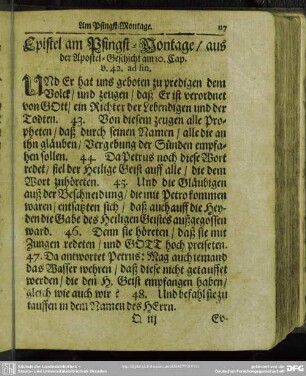 Am Pfingst-Montage. 117
Epistel am Pfingst-Montage/ aus
der Apostel-Geschicht am 10. Cap.
v. 42. ad fin.
UNd Er hat uns geboten zu predigen dem
Volck/ und zeugen/ daß Er ist verordnet
von GOtt/ ein Richter der Lebendigen und der
Todten. 43. Von diesem zeugen alle Pro-
pheten/ daß durch seinen Namen/ alle die an
ihn gläuben/ Vergebung der Sünden empfa-
hen sollen. 44. Da Petrus noch diese Wort
redet/ fiel der Heilige Geist auff alle/ die dem
Wort zuhöreten. 45. Und die Gläubigen
auß der Beschneidung/ die mit Petro kommen
waren/ entsatzten sich/ daß auch auff die Hey-
den die Gabe des Heiligen Geistes außgegossen
ward. 46. Denn sie höreten/ daß sie mit
Zungen redeten/ und GOTT hoch preiseten.
47. Da antwortet Petrus: Mag auch iemand
das Wasser wehren/ daß diese nicht getauffet
werden/ die den H. Geist empfangen haben/
gleich wie auch wir? 48. Und befahl sie zu
tauffen in dem Namen des HErrn.
Q iij Ev-